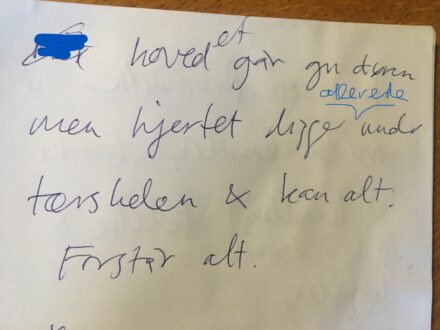 hovedet går gn døren
allerede
men hjertet ligge under
tærskelen & kan alt.
Forstår alt.